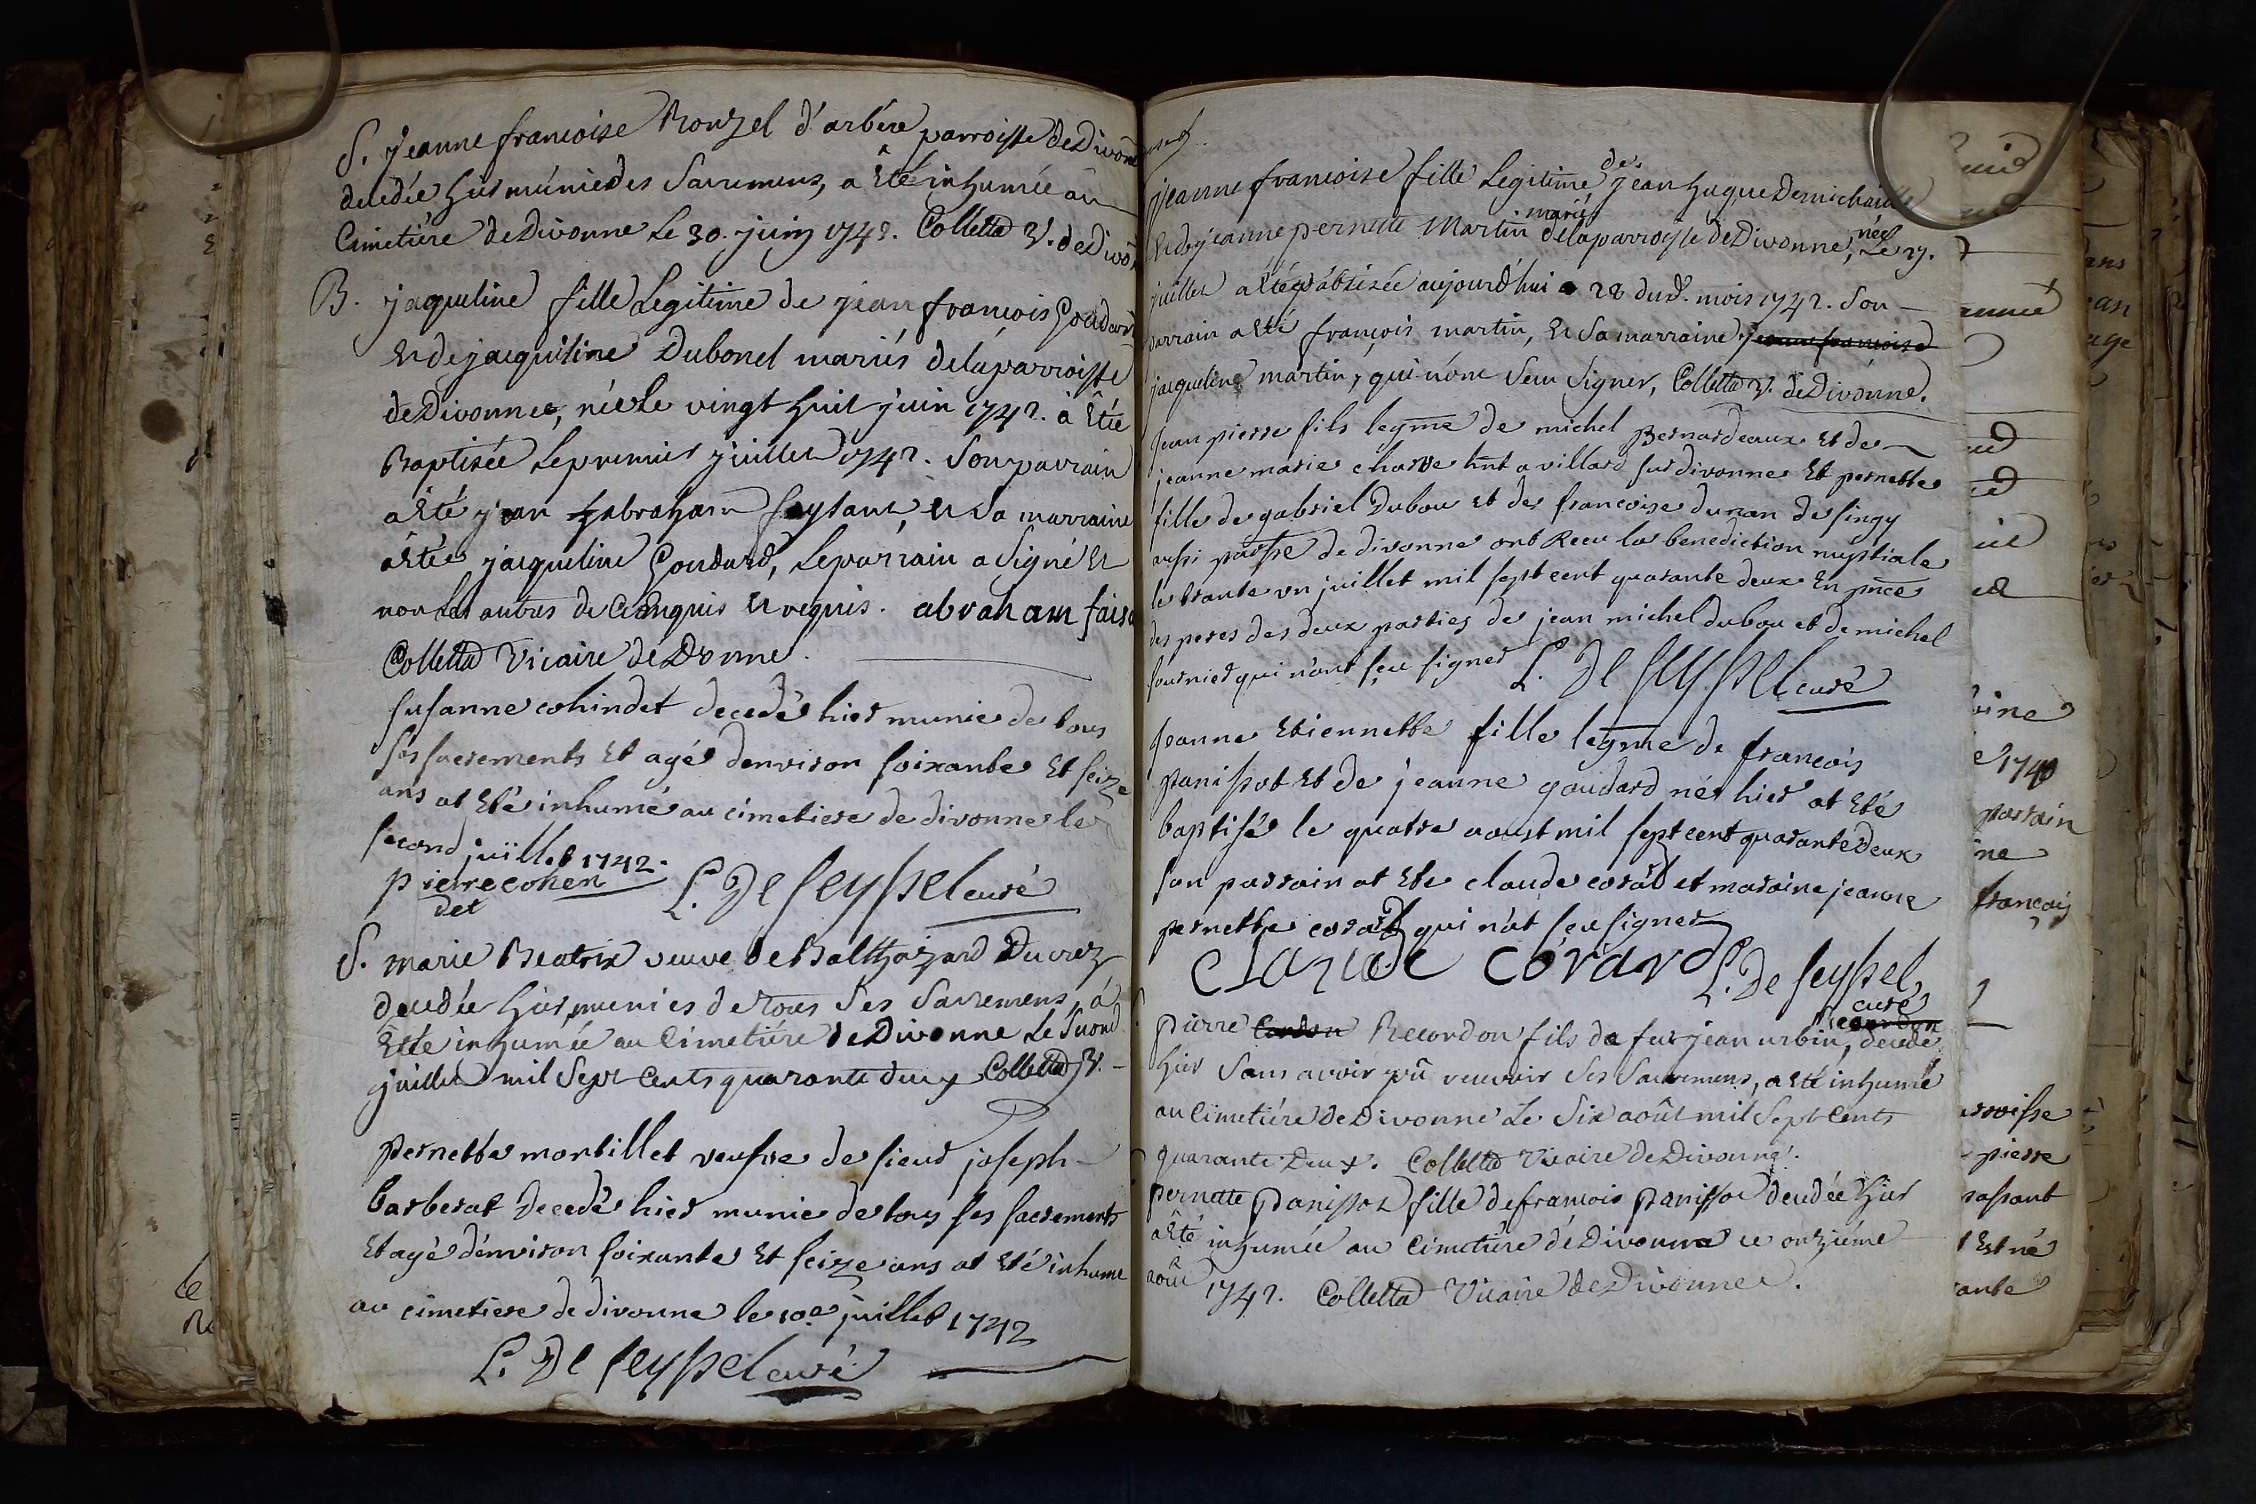 S. Jeanne francoise Rouzel d'arbére parroisse de Divonne
decedée hier munie des Sacremens, a êté inhumée au
Cimetiére de Divonne Le 30. juin 1742. Colletta V. de Divon
B. jaqueline fille Legitime de jean françois Goudard
et de jacqueline Dubonel mariés de la parroisse
de Divonne, née le vingt huit juin 1742. à êtée
Baptisée le premier juillet 1742. Son parrain
a êté jean abraham et Sa marraine
a êtée jacqueline Goudard, Le parrain a Signé et
non les autres de ce enquis et requis. abraham fais
Colletta Vicaire de Divonne.
susanne cohindet decedé hier munie de tous
ses sacrements et agé denviron soixante et seize
ans at eté inhumé au cimetiere de divonne le
second juillet 1742.
pierre cohen
det
L. De seyssel curé
S. marie Beatrix veuve de Balthazard Ducrez
decedée hier, munies de tous Ses Sacremens, à
Eté inhumée au Cimetiére de Divonne Le Second
juillet mil Sept Cents quarante deux Colletta V.
pernette montillet veufve de sieur joseph
barberat decedé hier munie de tous ses sacrements
et agé d'environ soixante et seize ans at eté inhume
au cimetiere de divonne le 10e juillet 1742
L. De seyssel curé
jeanne francoise fille Legitime de jean huque Dernichaille
et de jeanne pernette Martin mariés de la parroisse de Divonne, née Le 27.
juillet a êté bâtisée aujourd'hui 28 dud. mois 1742. Son
parrain a êté françois martin, et Sa marraine jeanne francoise
jaqueline martin, qui n'ont Seu Signer, Colletta V. de Divonne.
jean pierre fils legme de michel Bernardeaux et de
jeanne marie charve hnt a villard sur divonne et pernette
fille de gabriel Dubou et de francoise dunan de singy
aussi parsse de divonne ont Receu la benediction nuptiale
le trante un juillet mil sept cent quarante deux En pnce
des peres des deux parties de jean michel dubou et de michel
fournier qui n'ont sçeu signer L. De seyssel curé
jeanne Etiennette fille legme de françois
panissot et de jeanne goudard né hier at eté
baptisé le quatre aoust mil sept cent quarante Deux
son parrain at Ete claude corard et maraine jeanne
pernette corard qui n'at seu signer
Claude corard L. De seyssel
curé
pierre Cordon Recordon fils de feu jean urbin, decedé
hier Sans avoir pû recevoir Ses Sacremens, a êté inhumé
au Cimetiére de Divonne Le Six août mil Sept Cents
quarante Deux. Colletta Vicaire de Divonne.
pernette panissot fille de francois panissot decedée hier
a êté inhumée au Cimetiére de Divonne ce onziéme
août 1742. Colletta Vicaire de Divonne.
1740
parrain
ne
françois
pierre